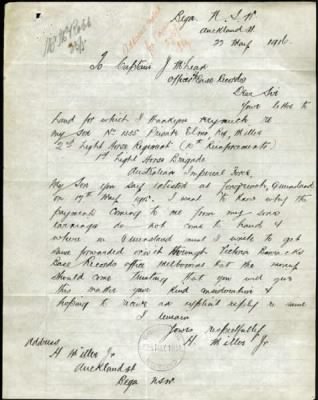 Bega N.S.W
Auckland St
22 May 1916
To Captain J McLean
Officer Base Records
Dear Sir
Your letter to
hand for which I thank you very much re
my Son No 1025 Private Elmo Roy Miller
2nd Light Horse Regiment (10th Reinforcements)
1st Light Horse Brigade
Australian Imperial Force,
My Son you say enlisted at Longreach, Queensland
on I want to know why the
payments coming to me from my sons
earnings do not come to hand &
where in Queensland must I write to get
same forwarded or is it through Victoria Barracks
Base Records office Melbourne that the money
should come Trusting that you will give
this matter your kind consideration &
hoping to receive an explicit reply re same
I remain
Yours respectfully
H Miller Jr
Address
H Miller Jr
Auckland St
Bega NSW